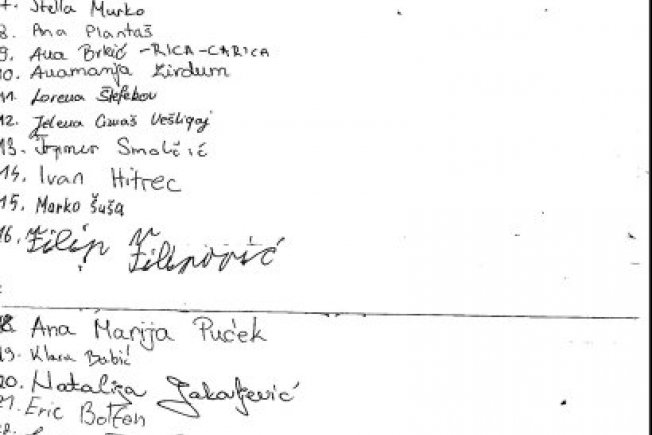 7. Stella Murko
8. Ana Plantaš
9. Ana Brkić -RICA-CARICA
10. Anamanja Zirdum
11. Lorena Štefekov
12. Jelena Vešligaj
13. Smolčić
14. Ivan Hitrec
15. Marko Šuša
16. Filip Filipović
18. Ana Marija Puček
19. Klara Babić
20. Natalija Jakovljević
21. Eric